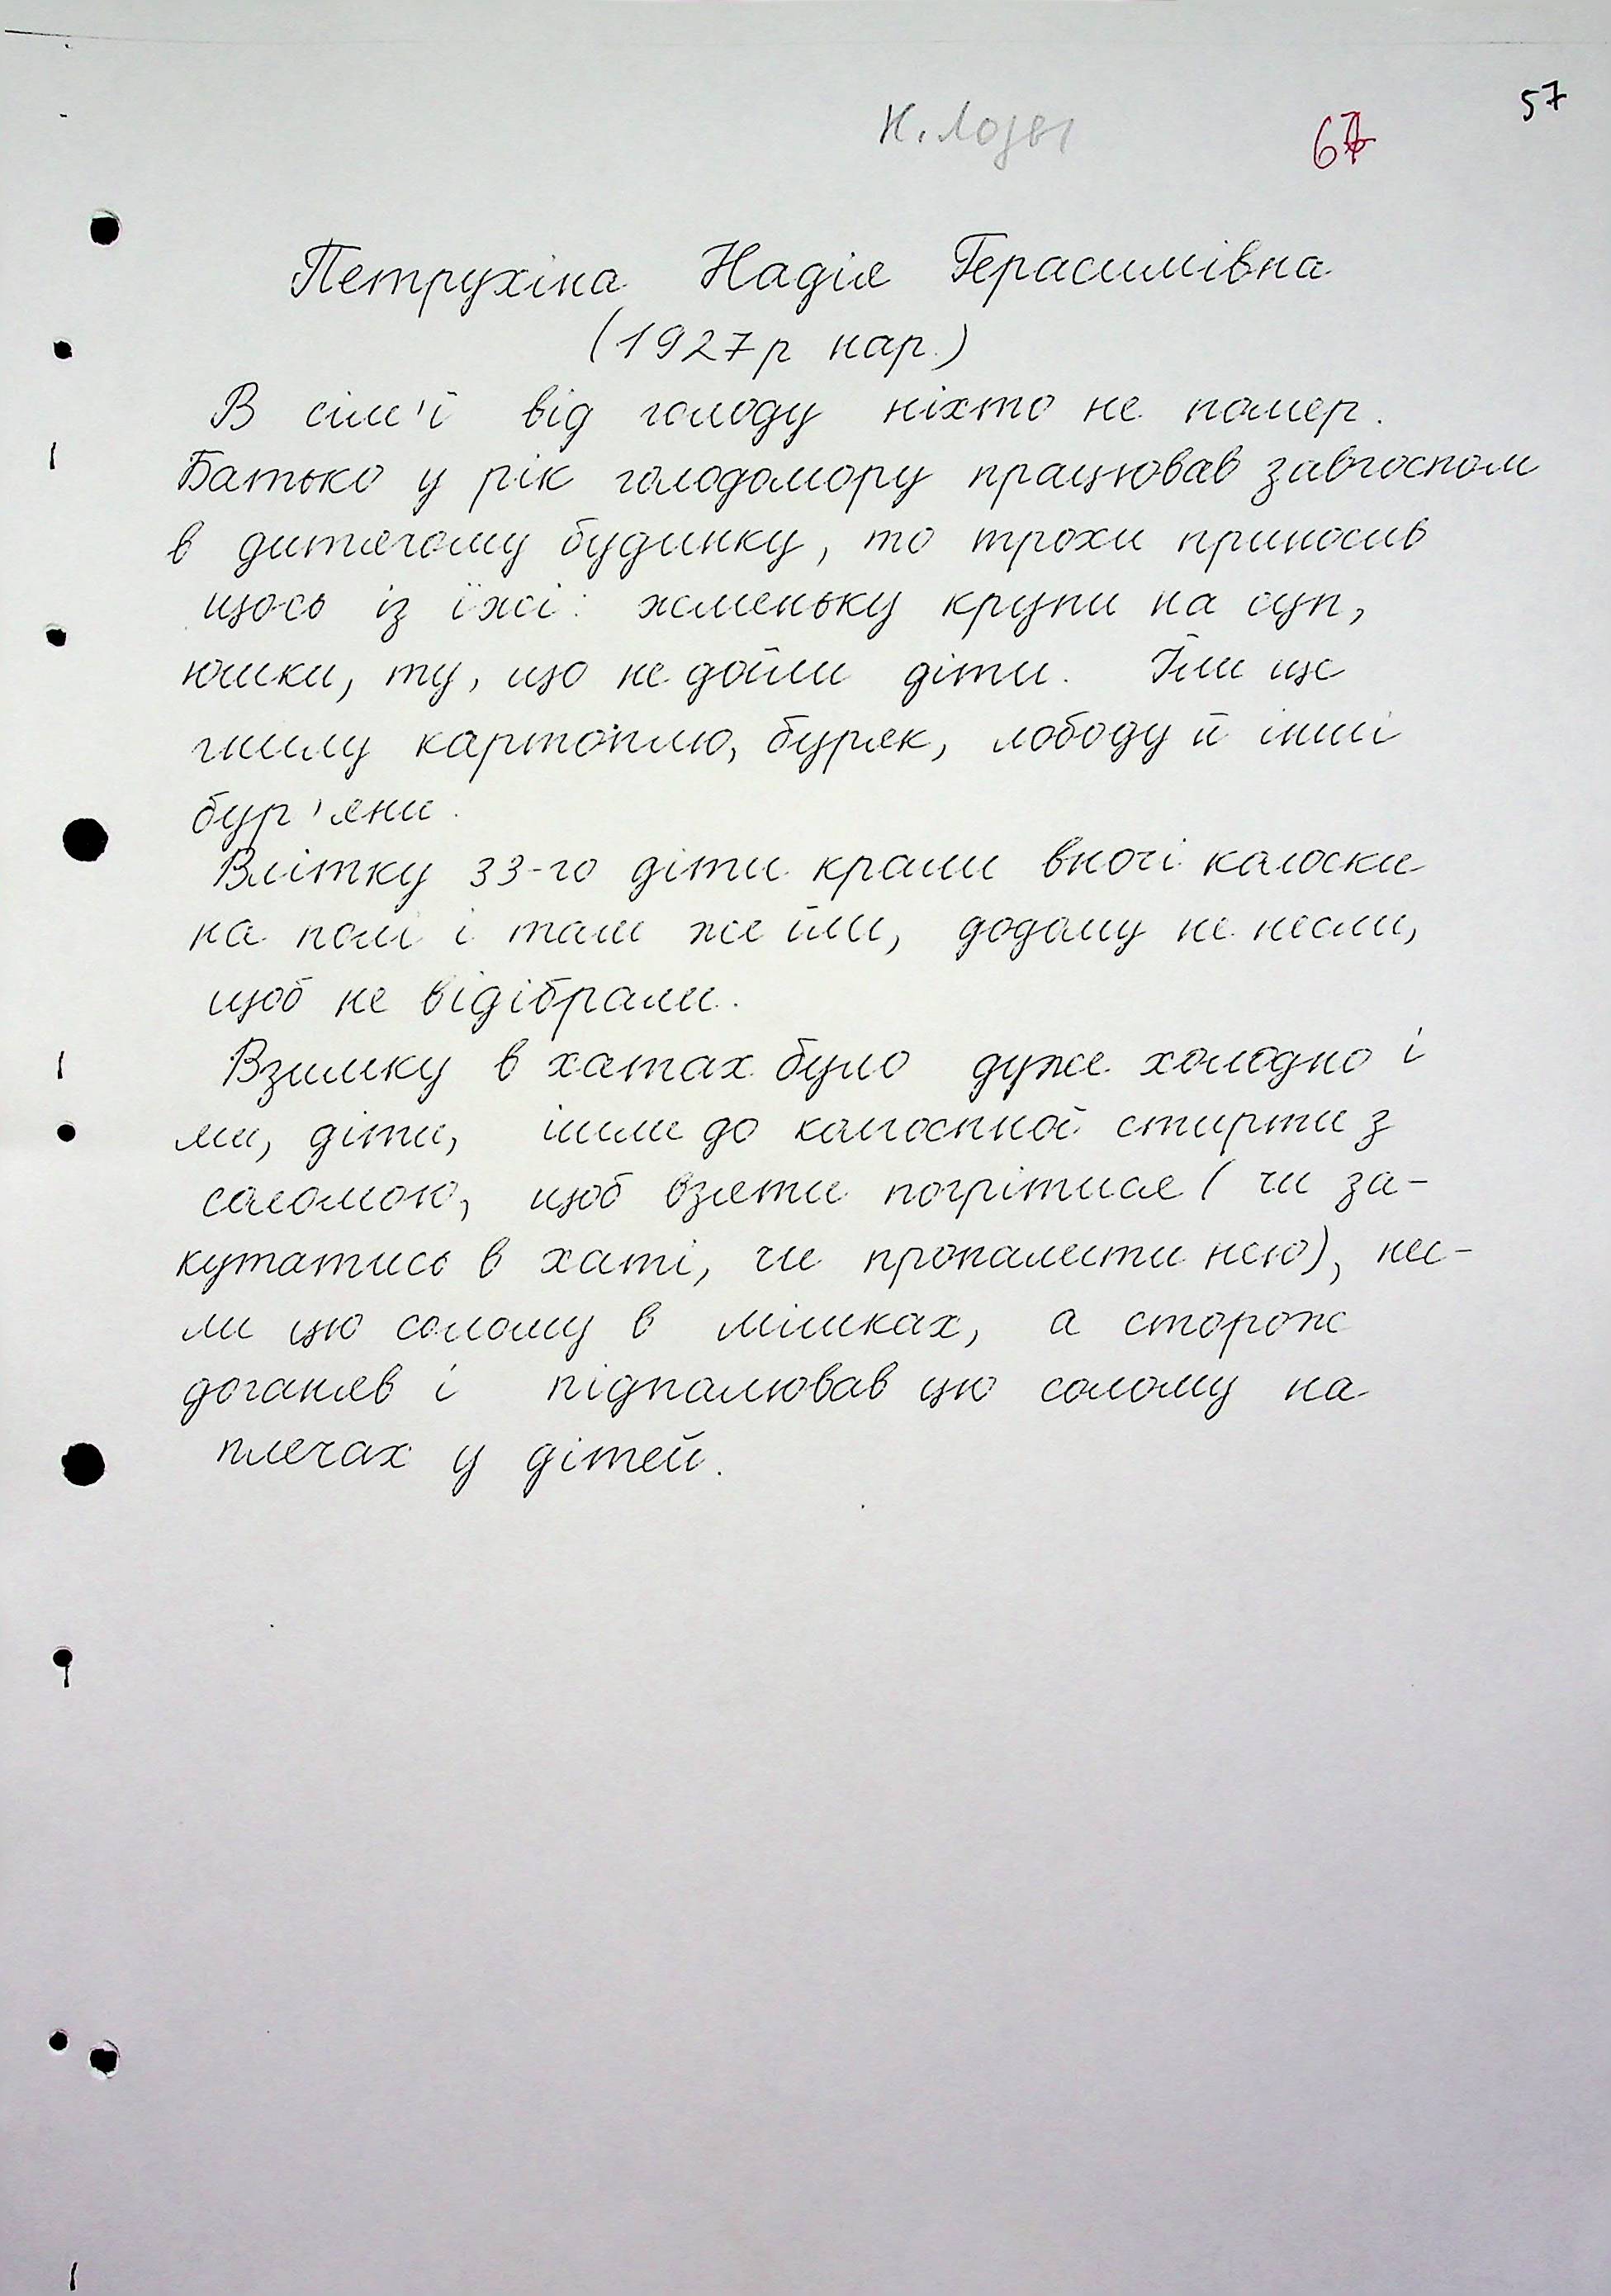 57
Н. Лозы
67
Петрухіна Надія Герасимівна
(1927р нар.)
В сім'ї від голоду ніхто не помер.
Батько у рік голодомору працював завгоспом
в дитячому будинку, то трохи приносив
щось із їжі: жменьку крупи на суп,
юшки, ту, що не доїли діти. Їли ще
гнилу картоплю, буряк, лободу й інші
бур'яни.
Влітку 33-го діти крали вночі колоски
на полі і там же їли, додому не несли,
щоб не відібрали.
Взимку в хатах було дуже холодно і
ми, діти, ішли до колгоспної стирти з
соломою, щоб взяти погрітися (чи за-
кутатись в хаті, чи пропалити нею), нес-
ли цю солому в мішках, а сторож
доганяв і підпалював цю солому на
плечах у дітей.